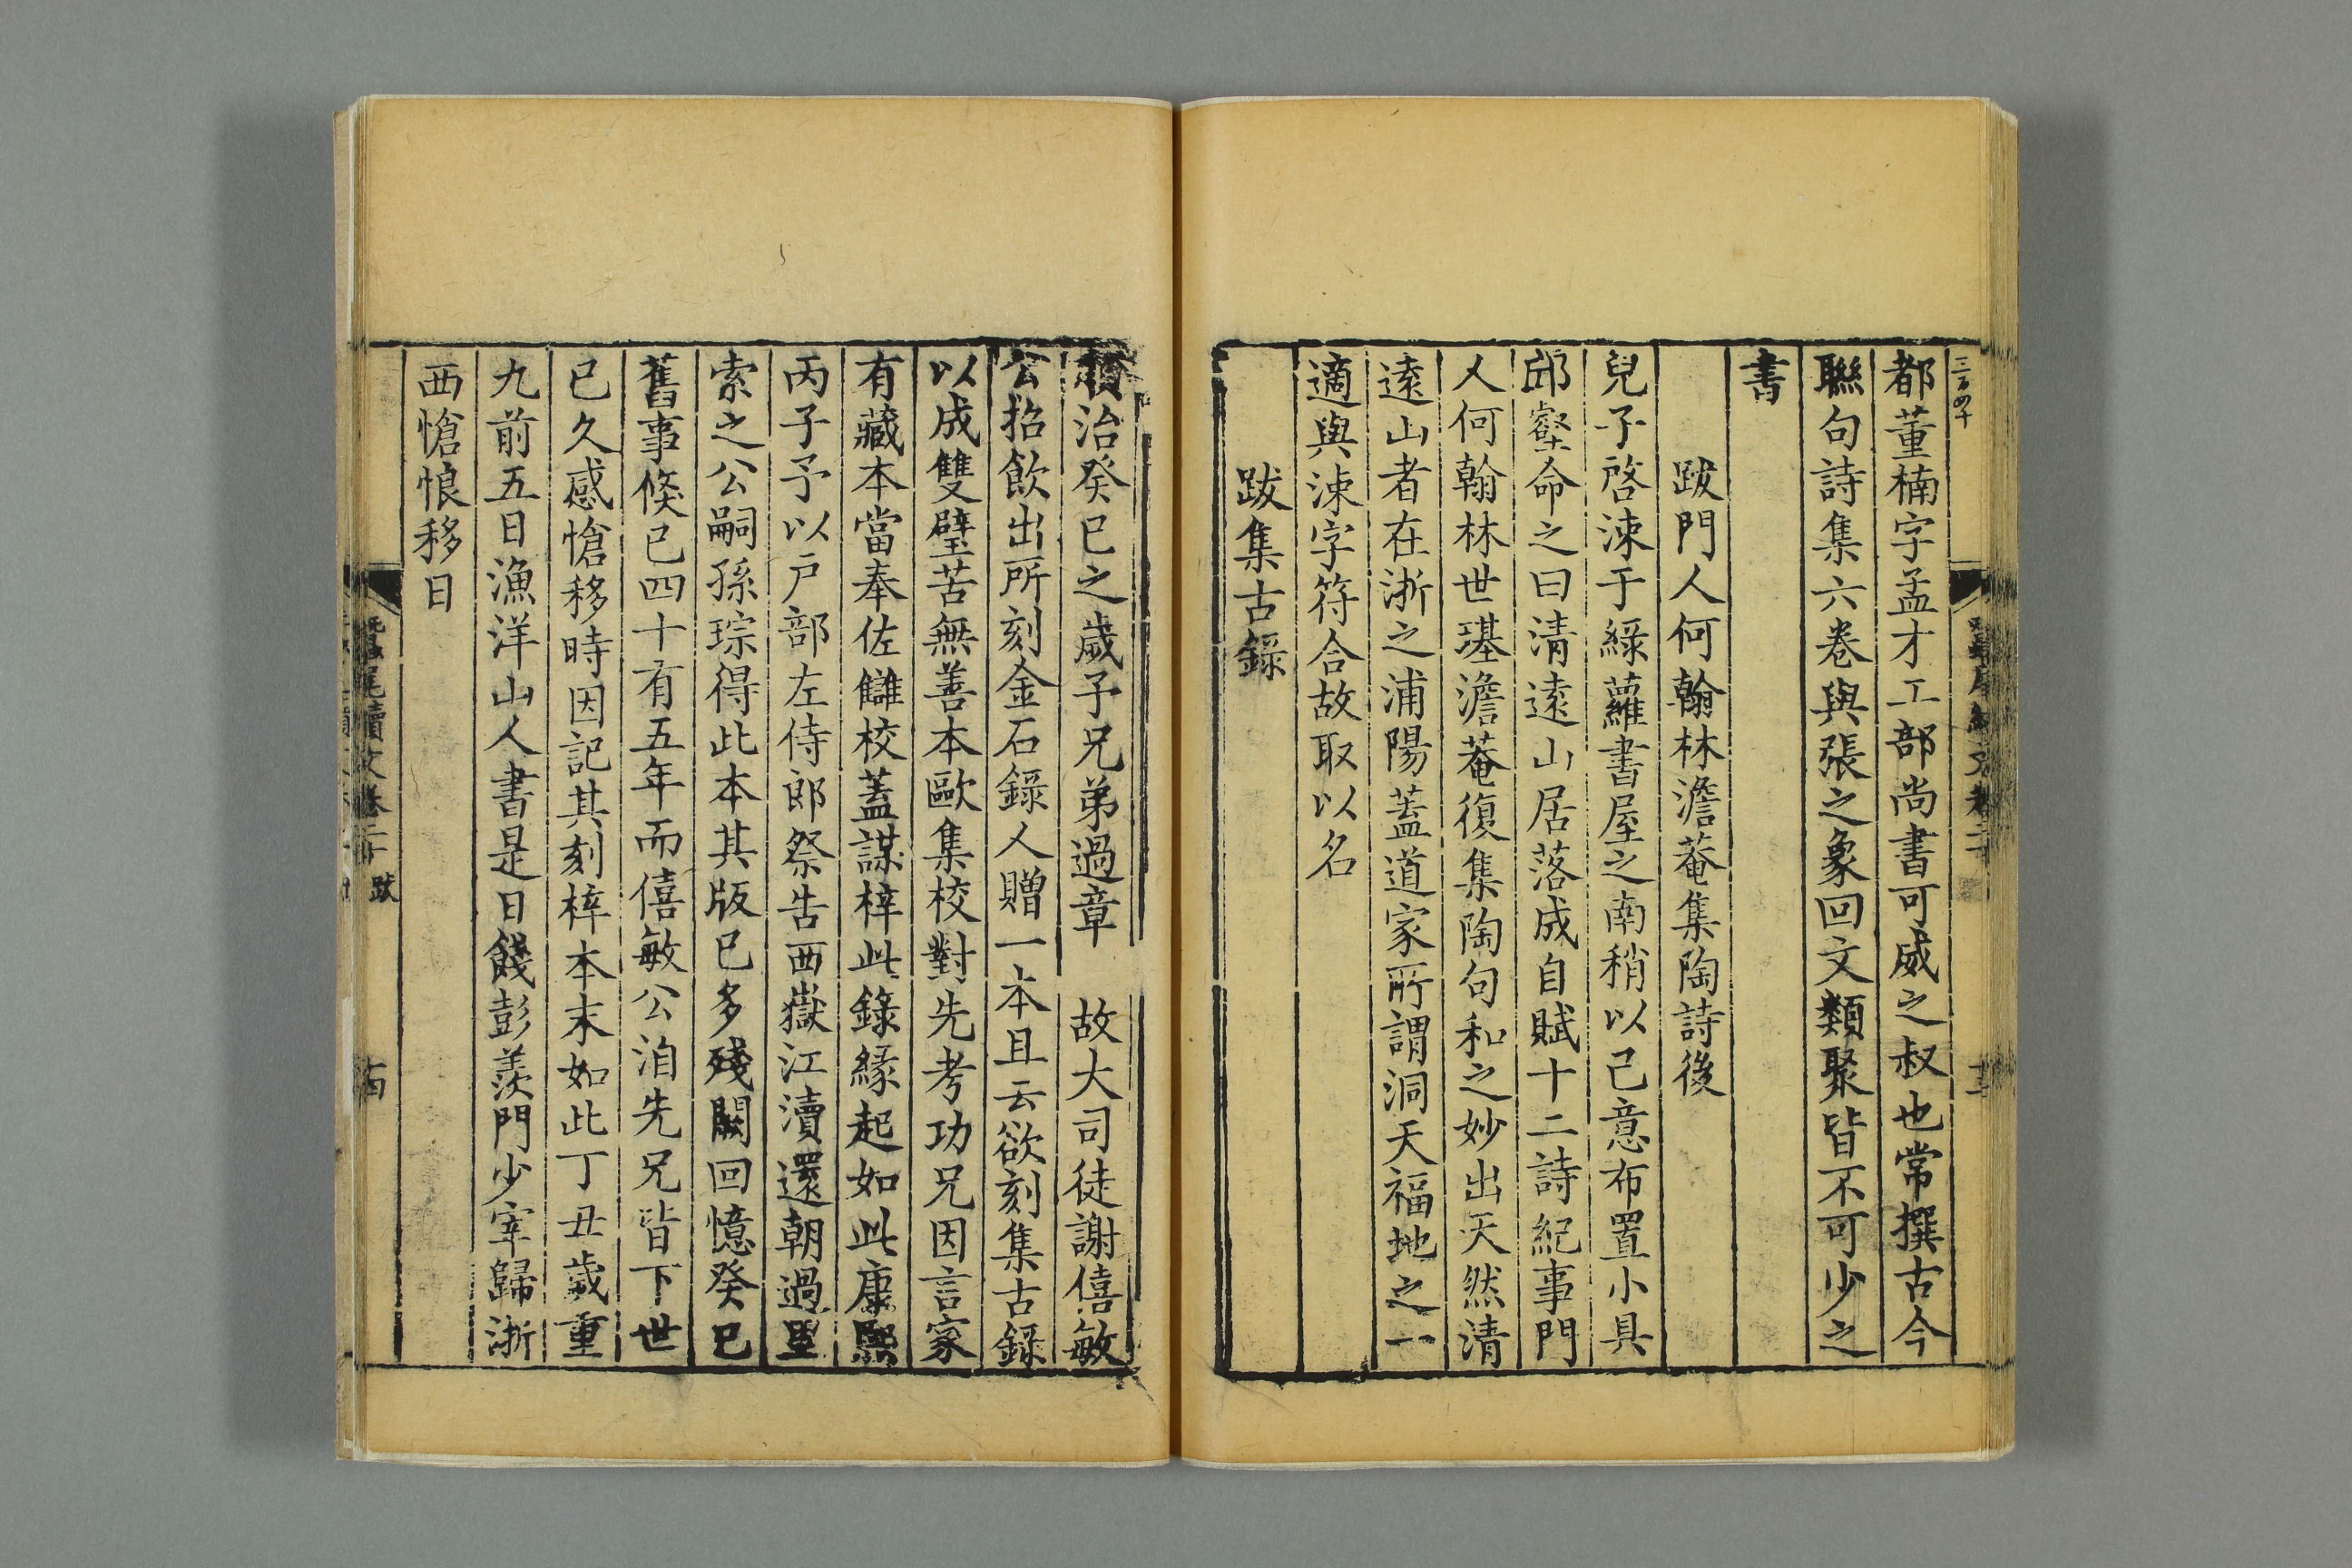 三百四十
都董楠字孟才工部尚書可威之叔也常撰古今
聯句詩集六卷與張之象回文類聚皆不可少之
書
跋門人何翰林澹菴集陶詩後
兒子啓涑于綠蘿書屋之南稍以己意布置小具
邱壑命之曰清遠山居落成自賦十二詩紀事門
人何翰林世璂澹菴復集陶句和之妙出天然清
遠山者在浙之浦陽蓋道家所謂洞天福地之一
適與涑字符合故取以名
跋集古錄
順治癸巳之歲予兄弟過章 故大司徒謝僖敏
公招飲出所刻金石錄人贈一本且云欲刻集古錄
以成雙璧苦無善本歐集校對先考功兄因言家
有藏本當奉佐讎校蓋謀梓此錄緣起如此康熙
丙子予以戶部左侍郎祭告西嶽江瀆還朝過里
索之公嗣孫琮得此本其版已多殘闕回憶癸巳
舊事倐已四十有五年而僖敏公洎先兄皆下世
已久感愴移時因記其刻梓本末如此丁丑歲重
九前五日漁洋山人書是日餞彭羨門少宰歸浙
西愴悢移日
蠶尾續文卷二十 跋
十四